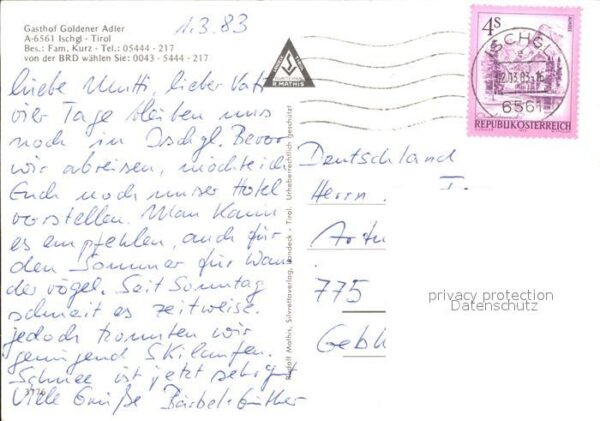 Gasthof Goldener Adler
A-6561 Ischgl - Tirol
Bes.: Fam. Kurz - Tel.: 05444 - 217
von der BRD wählen Sie: 0043 - 5444 - 217
1.3.83
Liebe Mutti, lieber Vati
vier Tage bleiben uns
noch in Ischgl. Bevor
wir abreisen, möchte ich
Euch noch unser Hotel
vorstellen. Man kann
es empfehlen, auch für
den Sommer für Wan
dervögel. Seit Sonntag
schneit es zeitweise.
jedoch konnten wir
genügend Skilaufen.
Schnee ist jetzt sehr gut
Viele Grüße Bärbel + Günther
3176
R. MATHIS
Rudolf Mathis, Silvrettaverlag, Landeck - Tirol. Urheberrechtlich geschützt!
4S
ISCHGL
02.03.83-16
6561
REPUBLIK ÖSTERREICH
Deutschland
Herrn
I.
Artu
775
Gebh
privacy protection
Datenschutz